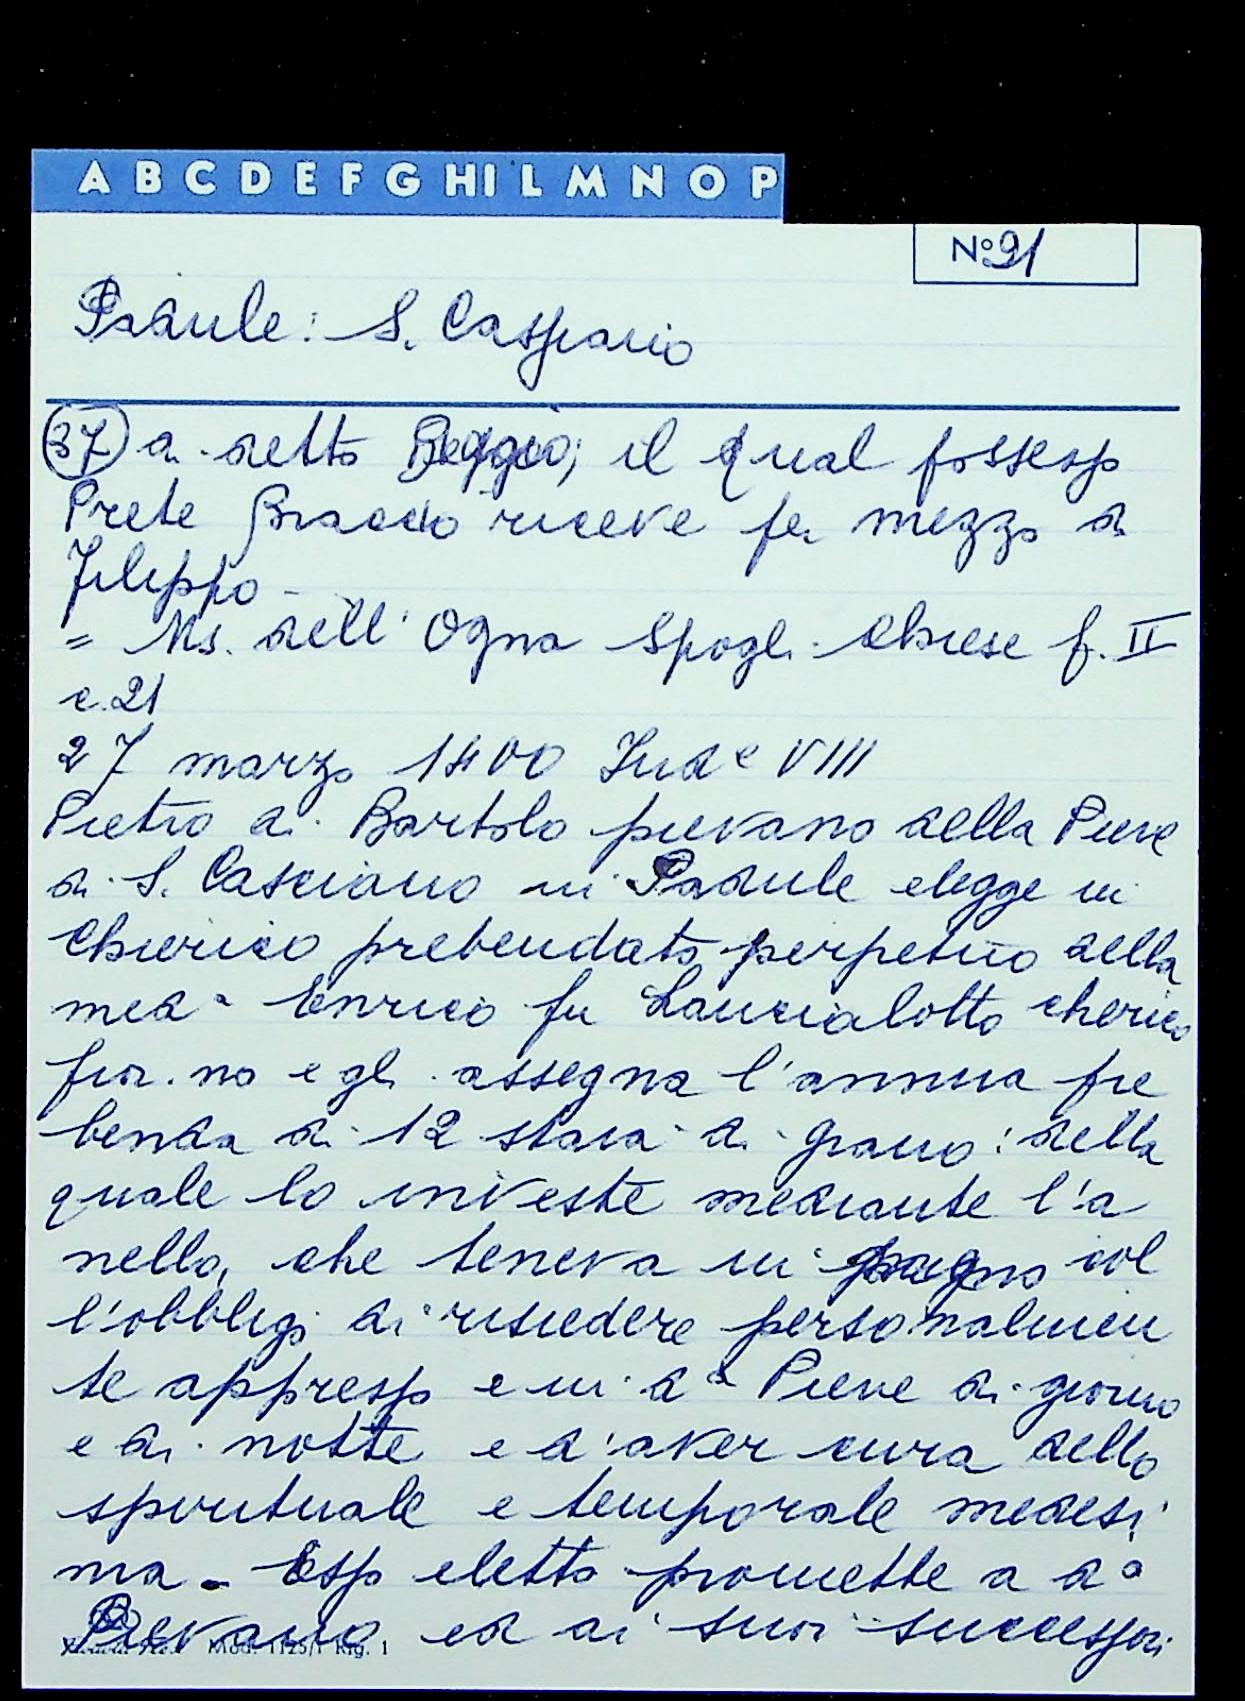 A B C D E F G HI L M N O P
N° 91
Padule: S. Casciano
37 di detto Poggio, il qual possesso
Prete Braccio riceve per mezzo di
Filippo -
= Ms. dell'Ogna Spogli Chiese f. II
c. 21
27 marzo 1400 Ind e VIII
Pietro di Bartolo pievano della Pieve
di S. Casciano in Padule elegge in
Chierico prebendato perpetuo della
med a Enrico fu Lancialotto cherico
fior.no e gli assegna l'annua pre
benda di 12 staia di grano: della
quale lo investe mediante l'a
nello, che teneva in pugno col
l'obbligo di risiedere personalmen
te appresso e in d a Pieve di giorno
e di notte e d'aver cura dello
spirituale e temporale medesi
ma - Esso eletto promette a d o
Pievano ed ai suoi successori
Mod. 1125/1 Rig. 1